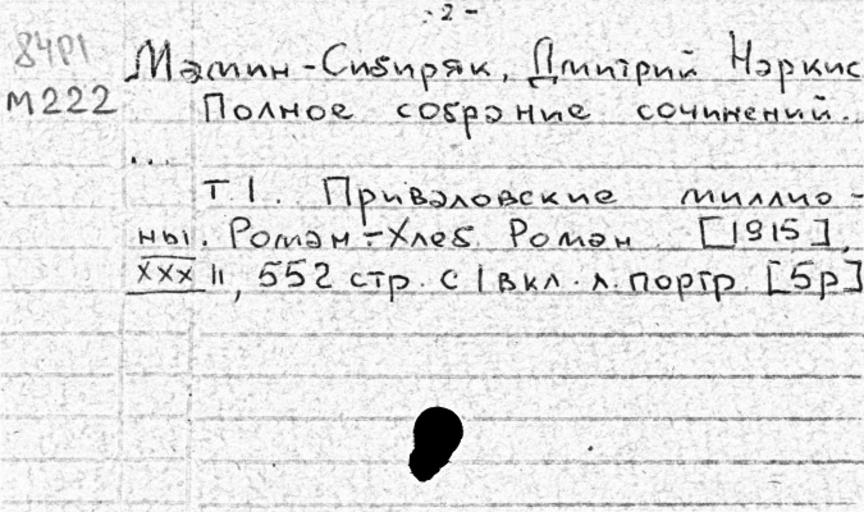 - 2 -
84Р1 Мамин-Сибиряк, Дмитрий Наркис
М222 Полное собрание сочинений..
...
Т 1. Приваловские миллио-
ны. Роман.-Хлеб. Роман [1915],
XXXII, 552 стр. с 1 вкл. л. портр. [5р]